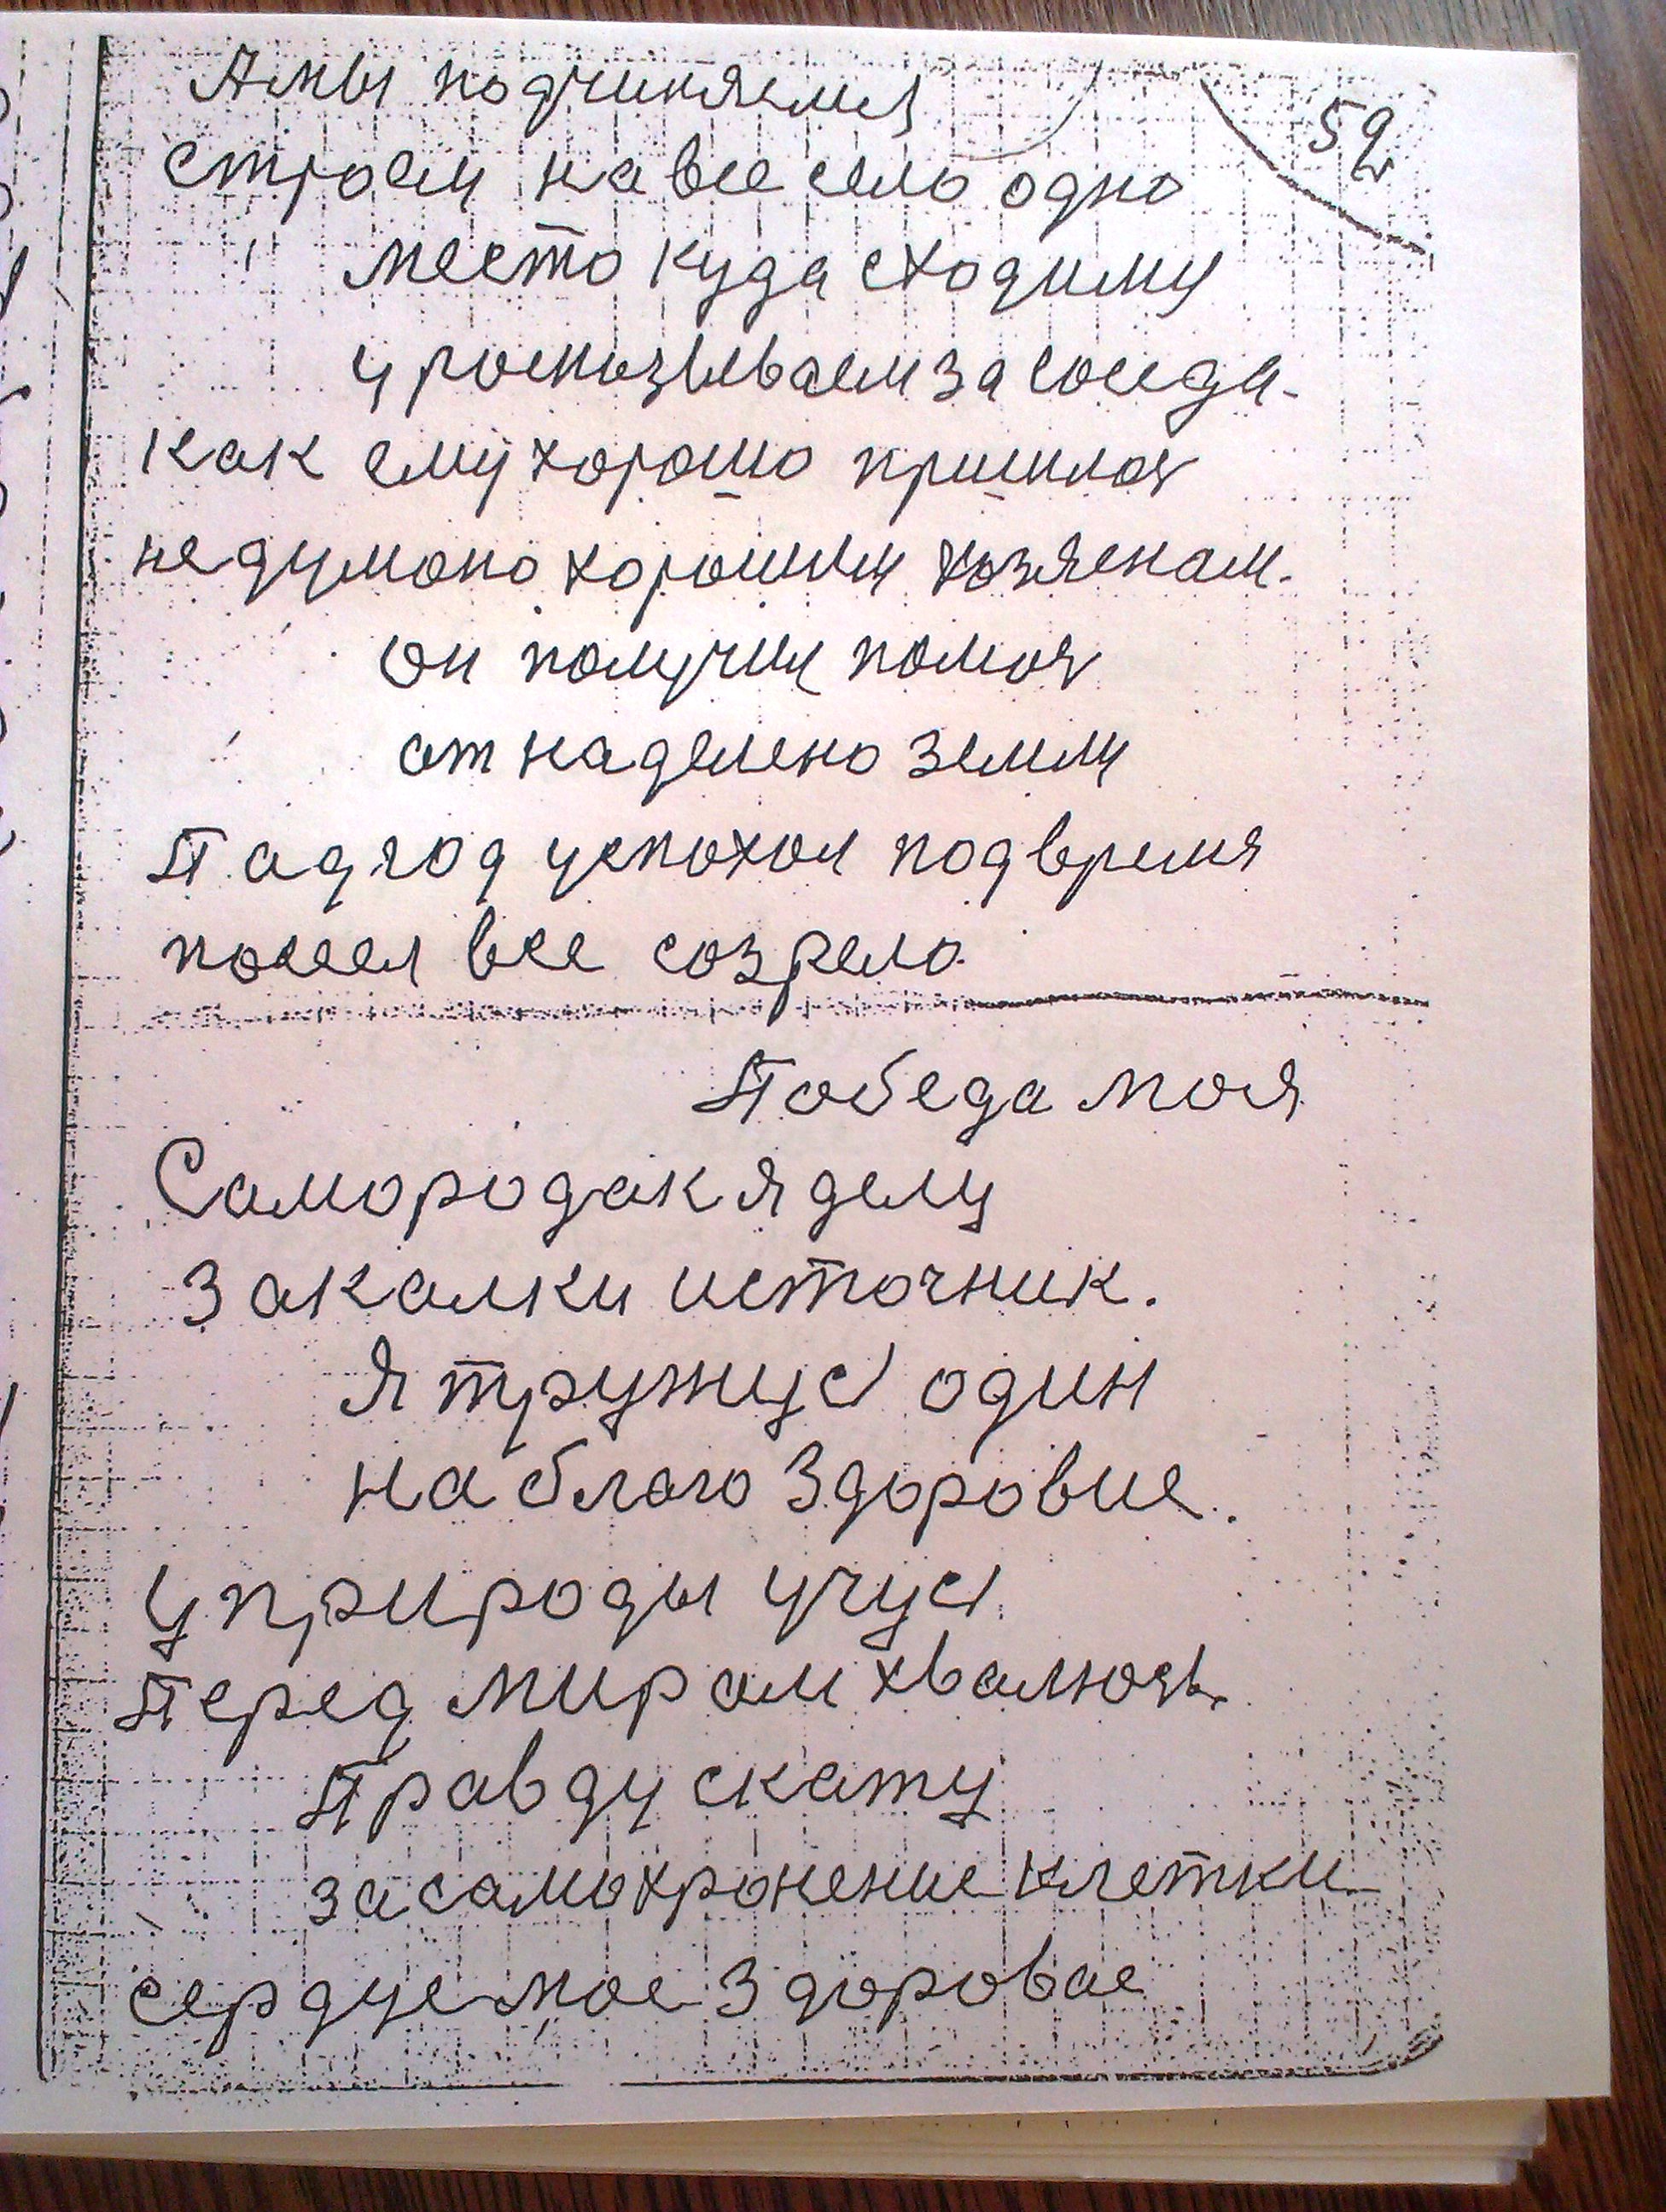 59
А мы подчиняемся
строем на все село одно
место куда сходимы
и росказываем за соседа.
как ему хорошо пришлос
не думоно хорошим хозяенам.
Он получил полюя
от наделено земли
Под год успохол подвремя
посеел все созрело.
Победа моя
Самородак я делу
Закалки источник.
Я тружус один
на благо Здоровие.
У природы учус.
Перед мирам хвалюсь
Правду скажу
за самохронение клетки
сердце мое Здоровае